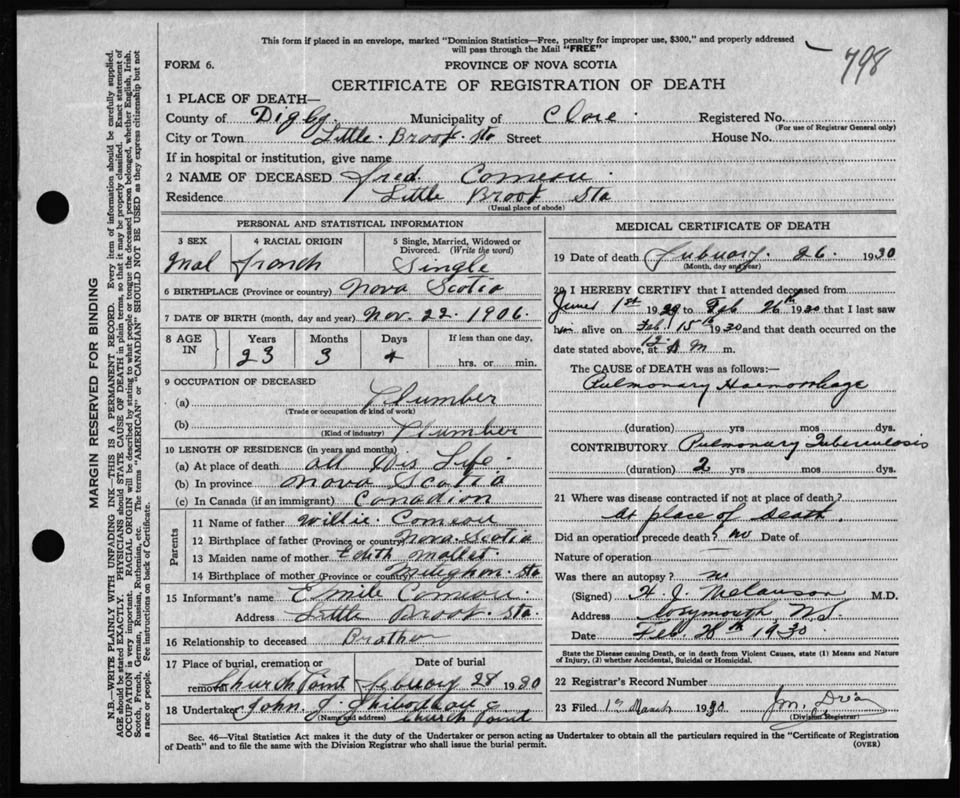 This form if placed in an envelope, marked "Dominion Statistics—Free, penalty for improper use, $300," and properly addressed
will pass through the Mail "FREE"
798
FORM 6.
PROVINCE OF NOVA SCOTIA
CERTIFICATE OF REGISTRATION OF DEATH
1 PLACE OF DEATH—
County of Digby Municipality of Clare Registered No.
(For use of Registrar General only)
City or Town Little Brook Sta Street House No.
If in hospital or institution, give name
2 NAME OF DECEASED Fred Comeau
Residence Little Brook Sta
(Usual place of abode)
PERSONAL AND STATISTICAL INFORMATION
3 SEX 4 RACIAL ORIGIN 5 Single, Married, Widowed or
Divorced. (Write the word)
Mal French Single
6 BIRTHPLACE (Province or country) Nova Scotia
7 DATE OF BIRTH (month, day and year) Nov. 22. 1906.
8 AGE IN Years Months Days If less than one day,
23 3 4 hrs. or min.
9 OCCUPATION OF DECEASED
(a) Plumber
(Trade or occupation or kind of work)
(b) Plumber
(Kind of industry)
10 LENGTH OF RESIDENCE (in years and months)
(a) At place of death all His Life
(b) In province Nova Scotia
(c) In Canada (if an immigrant) Canadian
Parents
11 Name of father Willie Comeau
12 Birthplace of father (Province or country) Nova Scotia
13 Maiden name of mother Edith Mallet
14 Birthplace of mother (Province or country) Meteghan Sta
15 Informant's name Emile Comeau
Address Little Brook Sta.
16 Relationship to deceased Brother
17 Place of burial, cremation or Date of burial
removal Church Point February 28 1930
18 Undertaker John J. Thibodeau
(Name and address) Church Point
MEDICAL CERTIFICATE OF DEATH
19 Date of death February 26 1930
(Month, day and year)
20 I HEREBY CERTIFY that I attended deceased from
June 1st 1929 to Feb 26th 1930 that I last saw
him alive on Feb 15th 1930 and that death occurred on the
date stated above, at 12 m.
The CAUSE of DEATH was as follows:—
Pulmonary Haemorrhage
(duration) yrs mos dys.
CONTRIBUTORY Pulmonary Tuberculosis
(duration) 2 yrs mos dys.
21 Where was disease contracted if not at place of death?
At place of death
Did an operation precede death? no Date of
Nature of operation
Was there an autopsy? no
(Signed) H. J. Melanson M.D.
Address Weymouth N.S
Date Feb. 28th 1930
State the Disease causing Death, or in death from Violent Causes, state (1) Means and Nature
of Injury, (2) whether Accidental, Suicidal or Homicidal.
22 Registrar's Record Number
23 Filed 1st March 1930
(Division Registrar)
Sec. 46—Vital Statistics Act makes it the duty of the Undertaker or person acting as Undertaker to obtain all the particulars required in the "Certificate of Registration
of Death" and to file the same with the Division Registrar who shall issue the burial permit.
(OVER)
MARGIN RESERVED FOR BINDING
N.B.—WRITE PLAINLY WITH UNFADING INK—THIS IS A PERMANENT RECORD. Every item of information should be carefully supplied.
AGE should be stated EXACTLY. PHYSICIANS should STATE CAUSE OF DEATH in plain terms, so that it may be properly classified. Exact statement of
OCCUPATION is very important. RACIAL ORIGIN will be described by stating to what people or tongue the deceased person belonged, whether English, Irish,
Scotch, French, German, Russian, Ruthenian, etc. The terms "AMERICAN" or "CANADIAN" SHOULD NOT BE USED as they express citizenship but not
a race or people. Fee instructions on back of Certificate.